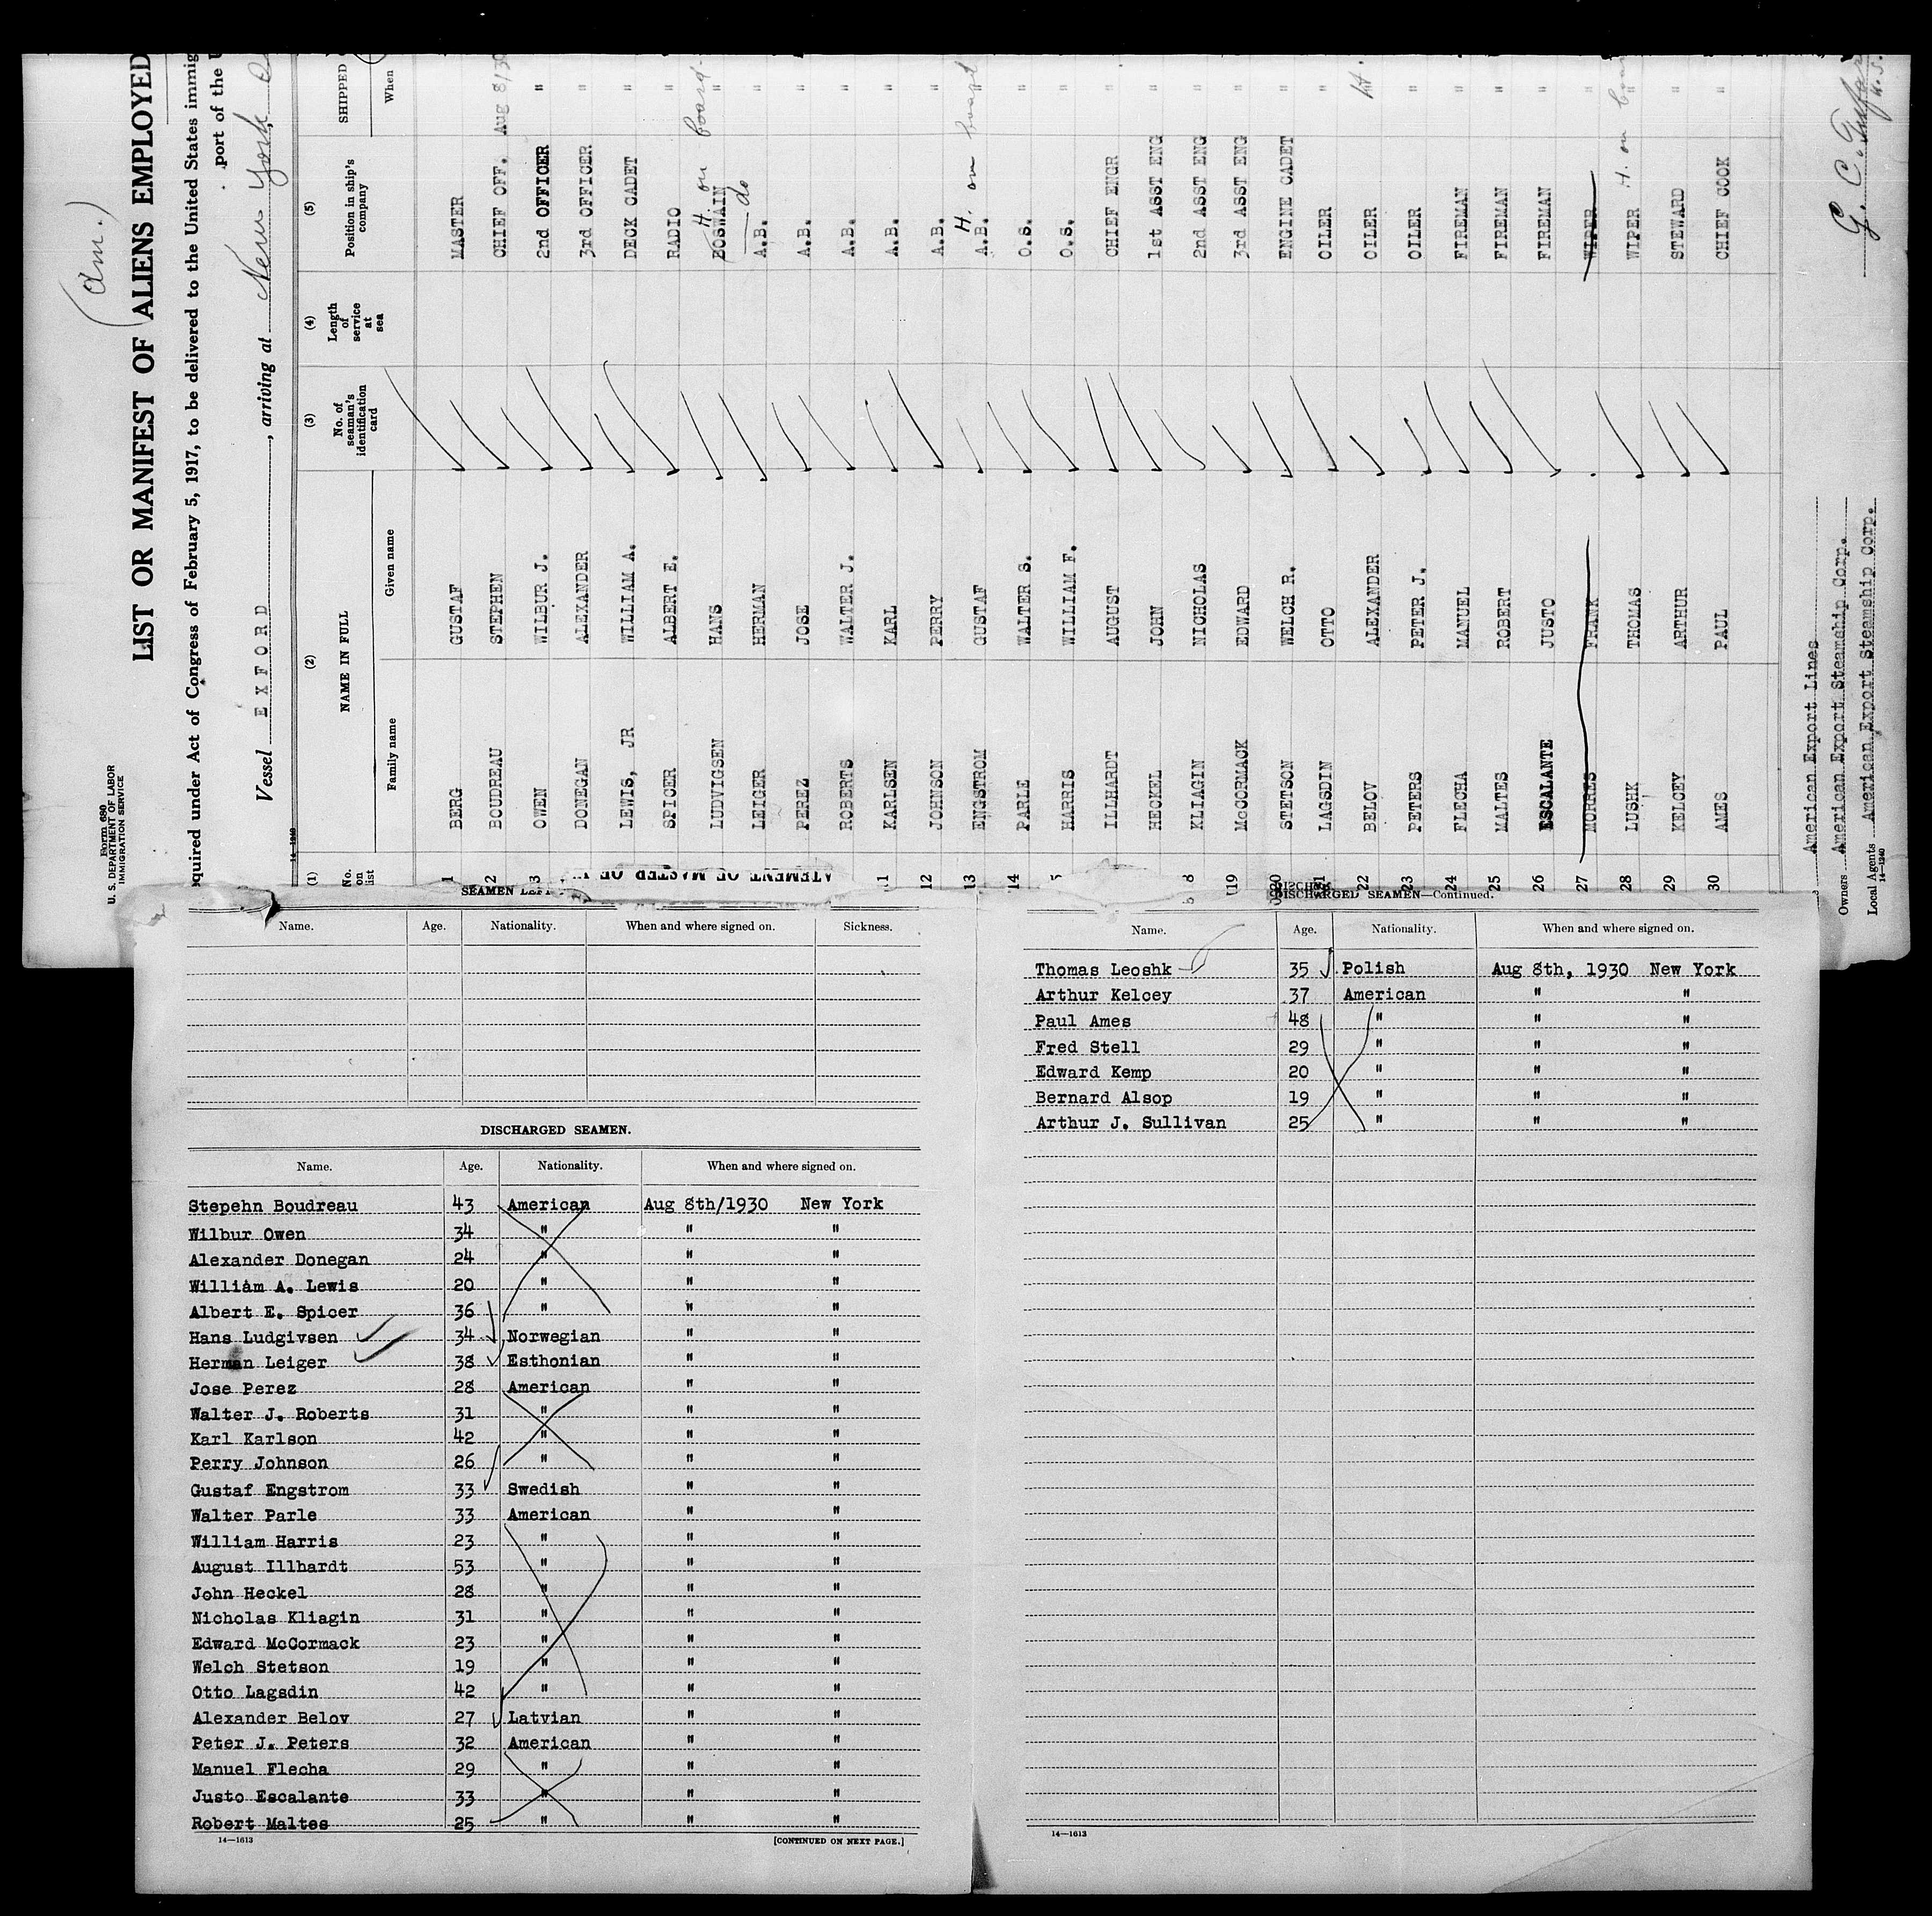 (Am.)
LIST OR MANIFEST OF ALIENS EMPLOYED
Form 680
U. S. DEPARTMENT OF LABOR
IMMIGRATION SERVICE
equired under Act of Congress of February 5, 1917, to be delivered to the United States immig
port of the U
Vessel EXFORD, arriving at New York
14—1240
(1) (2) (3) (4) (5)
No. on list NAME IN FULL No. of seaman's identification card Length of service at sea Position in ship's company SHIPPED
Family name Given name When
1 BERG GUSTAF MASTER
2 BOUDREAU STEPHEN CHIEF OFF. Aug 8/30
3 OWEN WILBUR J. 2nd OFFICER "
DONEGAN ALEXANDER 3rd OFFICER "
LEWIS, JR WILLIAM A. DECK CADET "
SPICER ALBERT E. RADIO "
LUDVIGSEN HANS BOSWAIN H. on board "
LEIGER HERMAN A.B. do "
PEREZ JOSE A.B. "
ROBERTS WALTER J. A.B. "
11 KARLSEN KARL A.B. "
12 JOHNSON PERRY A.B. "
13 ENGSTROM GUSTAF A.B. H. on board "
14 PARLE WALTER S. O.S. "
5 HARRIS WILLIAM F. O.S. "
ILLHARDT AUGUST CHIEF ENGR "
HECKEL JOHN 1st ASST ENG "
8 KLIAGIN NICHOLAS 2nd ASST ENG "
19 McCORMACK EDWARD 3rd ASST ENG "
20 STETSON WELCH R. ENGINE CADET "
21 LAGSDIN OTTO OILER "
22 BELOV ALEXANDER OILER " H.
23 PETERS PETER J. OILER "
24 FLECHA MANUEL FIREMAN "
25 MALTES ROBERT FIREMAN "
26 ESCALANTE JUSTO FIREMAN "
27 MORRES FRANK WIPER "
28 LUSHK THOMAS WIPER H. on boar "
29 KELCEY ARTHUR STEWARD "
30 AMES PAUL CHIEF COOK "
American Export Lines
Owners American Export Steamship Corp.
Local Agents American Export Steamship Corp.
14—1240
G. C.
ATEMENT OF MASTER OF
SEAMEN LEFT
Name. Age. Nationality. When and where signed on. Sickness.
DISCHARGED SEAMEN.
Name. Age. Nationality. When and where signed on.
Stepehn Boudreau 43 American Aug 8th/1930 New York
Wilbur Owen 34 " " "
Alexander Donegan 24 " " "
William A. Lewis 20 " " "
Albert E. Spicer 36 " " "
Hans Ludgivsen 34 Norwegian " "
Herman Leiger 38 Esthonian " "
Jose Perez 28 American " "
Walter J. Roberts 31 " " "
Karl Karlson 42 " " "
Perry Johnson 26 " " "
Gustaf Engstrom 33 Swedish " "
Walter Parle 33 American " "
William Harris 23 " " "
August Illhardt 53 " " "
John Heckel 28 " " "
Nicholas Kliagin 31 " " "
Edward McCormack 23 " " "
Welch Stetson 19 " " "
Otto Lagsdin 42 " " "
Alexander Belov 27 Latvian " "
Peter J. Peters 32 American " "
Manuel Flecha 29 " " "
Justo Escalante 33 " " "
Robert Maltes 25 " " "
14—1613
[CONTINUED ON NEXT PAGE.]
DISCHARGED SEAMEN—Continued.
Name. Age. Nationality. When and where signed on.
Thomas Leoshk 35 Polish Aug 8th, 1930 New York
Arthur Kelcey 37 American " "
Paul Ames 48 " " "
Fred Stell 29 " " "
Edward Kemp 20 " " "
Bernard Alsop 19 " " "
Arthur J. Sullivan 25 " " "
14—1613